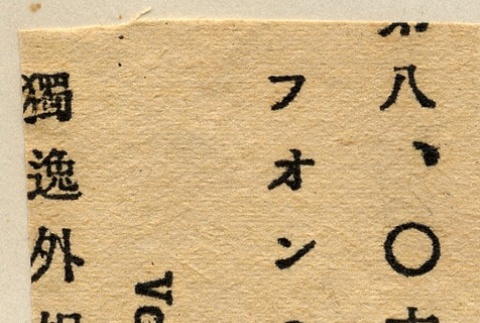 八、〇
フオン
Vo
獨逸外